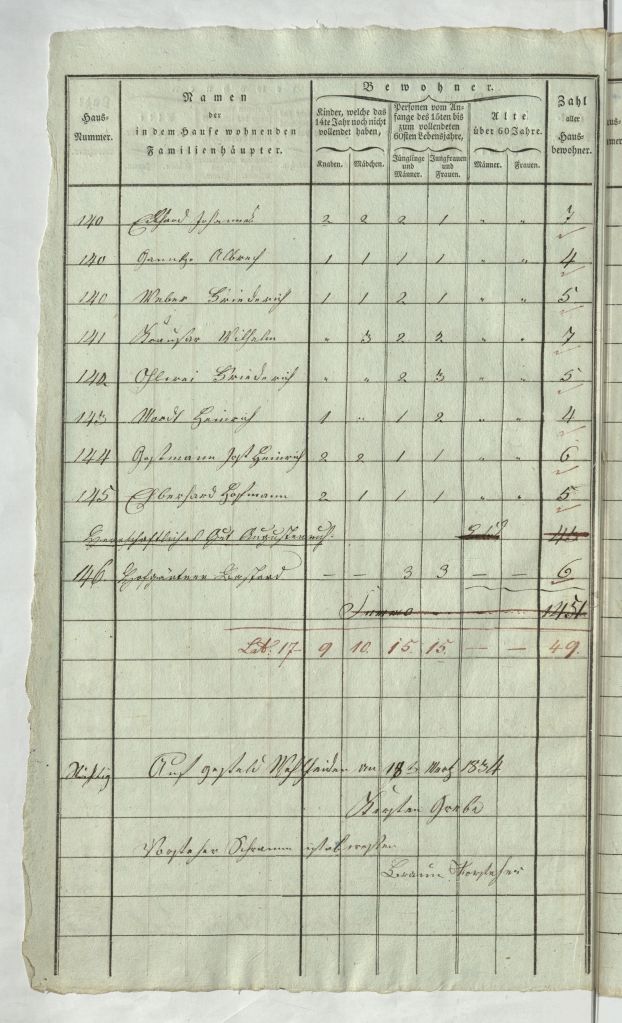 Haus-Nummer.
Namen
der
in dem Hause wohnenden
Familienhäupter.
Bewohner.
Kinder, welche das
14te Jahr noch nicht
vollendet haben,
Personen vom An-
fange des 15ten bis
zum vollendeten
60sten Lebensjahre,
Alte
über 60 Jahre.
Zahl
aller
Haus-
bewohner.
Knaben.
Mädchen.
Jünglinge
und
Männer.
Jungfrauen
und
Frauen.
Männer.
Frauen.
140 Johannes 2 2 2 1 " " 7
140 Albrech 1 1 1 1 " " 4
140 Weber Friederich 1 1 2 1 " " 5
141 Wilhelm " 3 2 2 " " 7
142 Friederich " " 2 3 " " 5
143 Mordt Heinrich 1 " 1 2 " " 4
144 Gestmann Jost Heinrich 2 2 1 1 " " 6
145 Eberhard Hofmann 2 1 1 1 " " 5
Herrschaftliches Gut
146 Hofgärtner 3 3 6
Summa 1451
Lat. 17 9 10. 15. 15. 49.
Wehlheiden am 18 Mertz 1834
Kirsten Grebe
Vorsteher Schramm
Braun Vorsteher